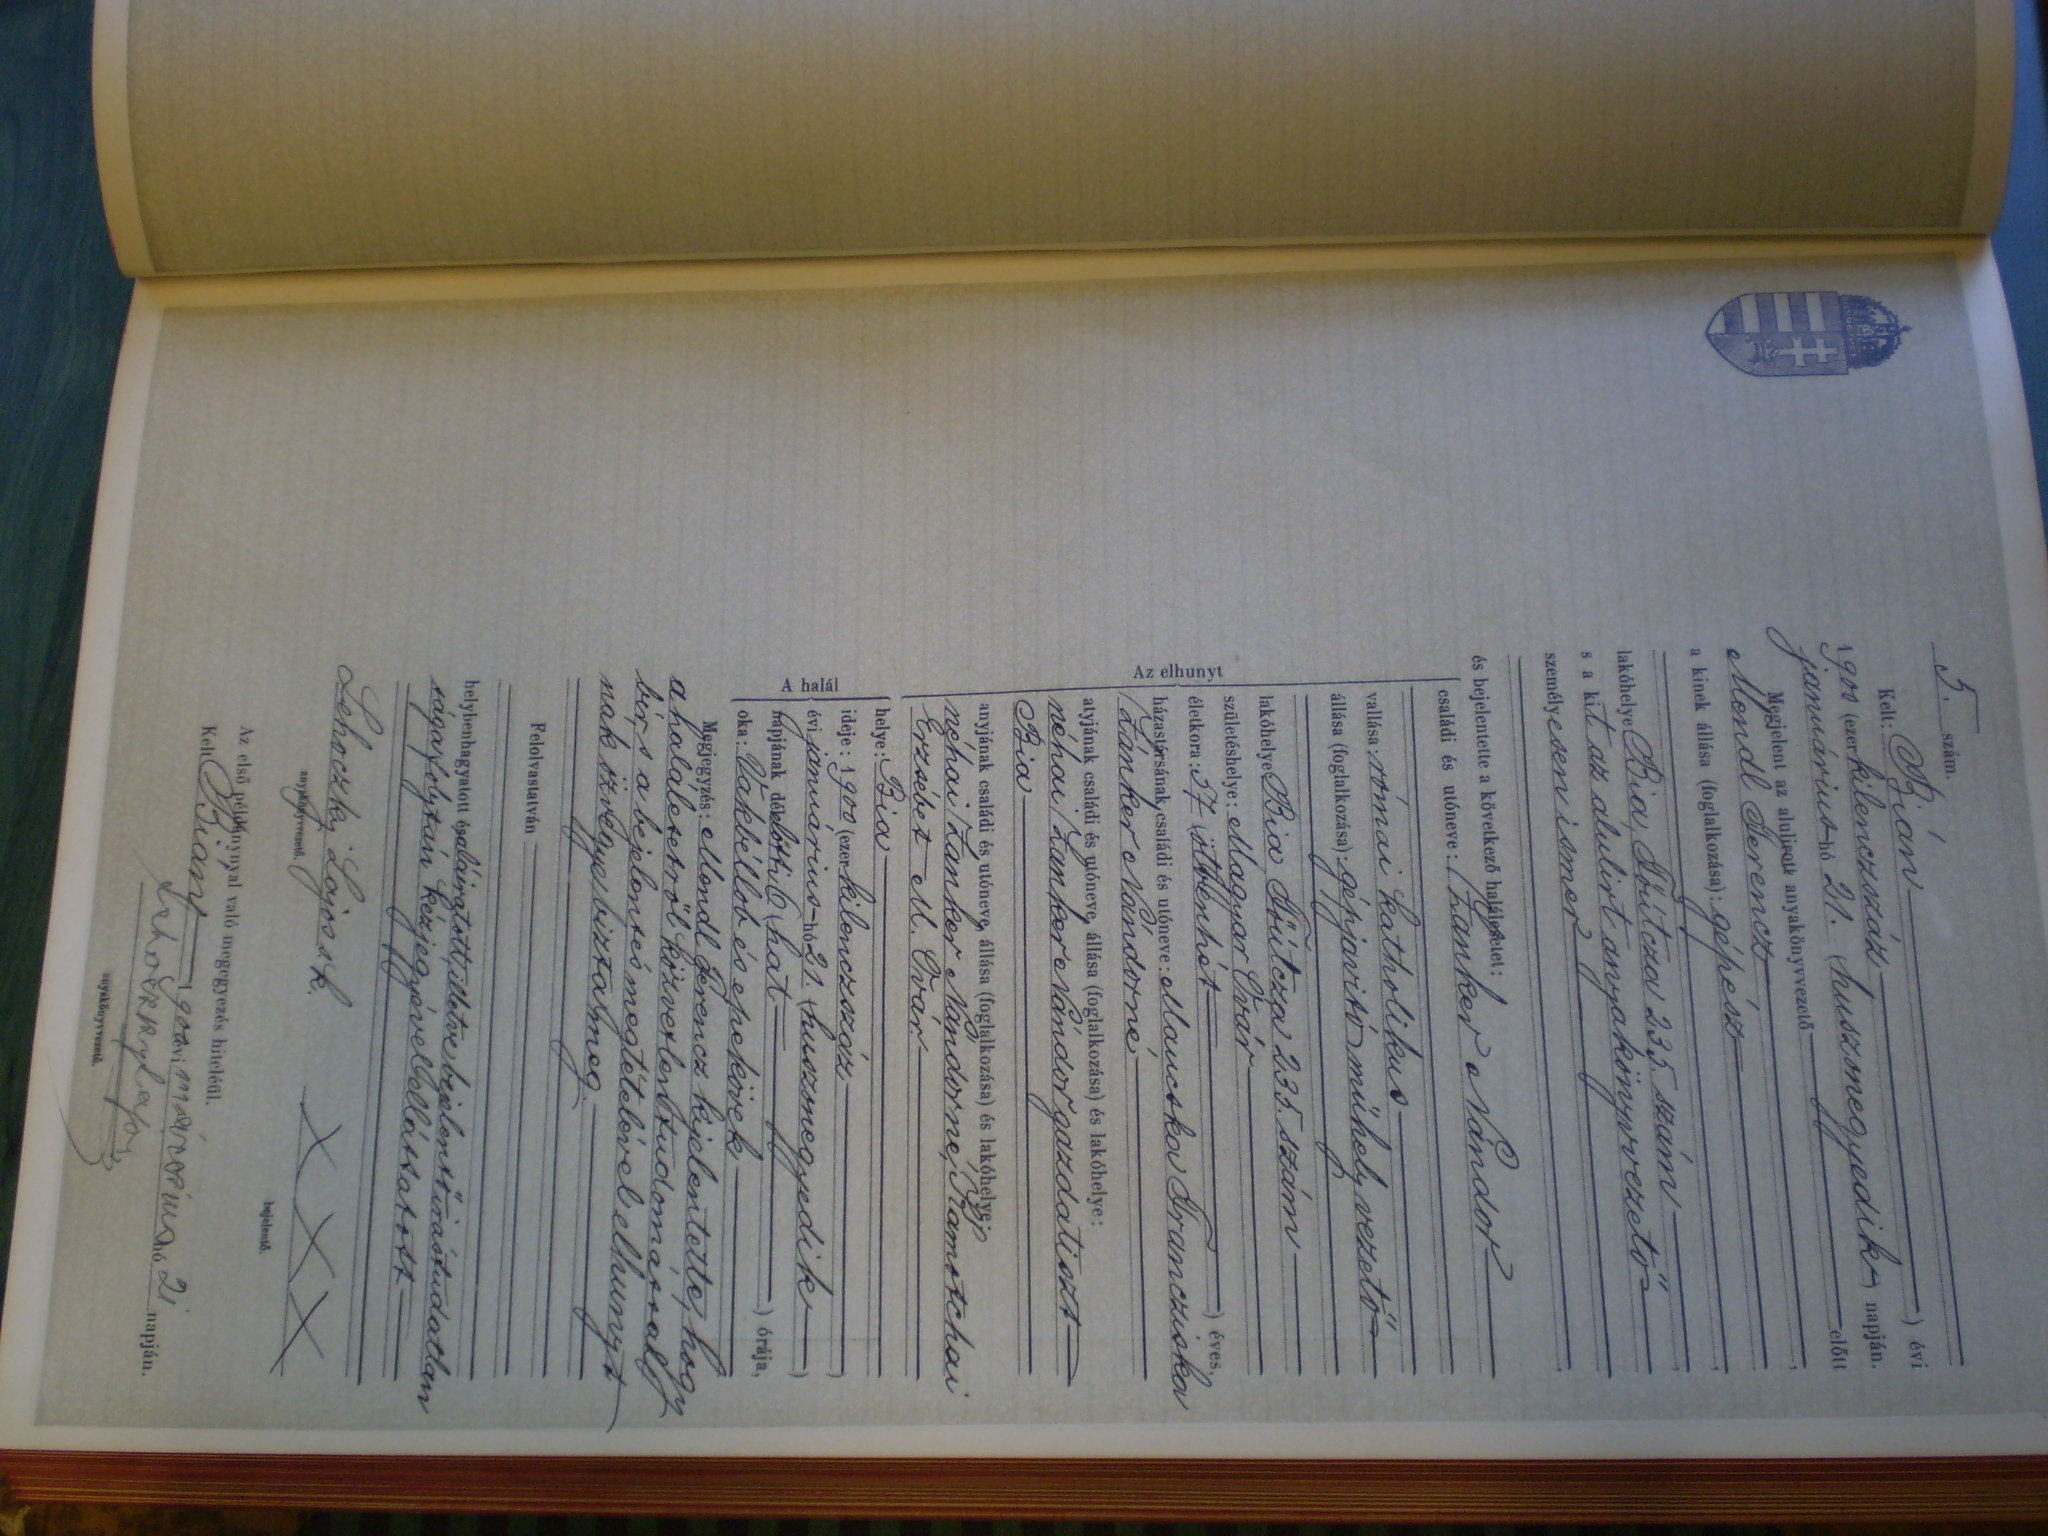 5. szám.
Kelt: Bián évi
1900 (ezer kilenczszáz
januárius hó 21. (huszonegyedik) napján.
Megjelent az alulirott anyakönyvvezető előtt
Mondl Ferencz
a kinek állása (foglalkozása): gépész
lakóhelye Bia, Főútcza 235. szám
s a kit az alulirt anyakönyvvezető
személyesen ismer
és bejelentette a következő halálesetet:
családi és utóneve: Zanker Nándor
vallása: római katholikus
állása (foglalkozása): gépjavitó műhely vezető
lakóhelye Bia Főútcza 235. szám
születéshelye: Magyar Óvár
életkora: 57 (ötvenhét) éves,
házastársának családi és utóneve: Maucska Francziska
Zánker Nándorné
Az elhunyt
atyjának családi és utóneve, állása (foglalkozása) és lakóhelye:
néhai Zanker Nándor gazdatiszt
Bia
anyjának családi és utóneve, állása (foglalkozása) és lakóhelye:
néhai Zanker Nándorné,
Erzsébet M. Óvár
helye: Bia
ideje: 1900 (ezer kilenczszáz)
évi januárius hó 21. (huszonegyedik)
napjának délelőtti 6 (hat) órája,
oka: Vakbéllob és epekövek
A halál
Megjegyzés: Mondl Ferencz kijelentette, hogy
a halálesetről közvetlen tudomással
bir s a bejelentés megtételével elhunyt
nak özvegye bizta meg.
Felolvastatván
helybenhagyatott és aláiratott, illetve bejelentő irástudatlan
sága folytán kézjegyével elláttatott
Lehoczky Lajos s. k. X X X
anyakönyvvezető. bejelentő.
Az első példánynyal való megegyezés hiteléül.
Kelt Bián, 1900 évi márczius hó 21 napján.
Lehoczky Lajos
anyakönyvvezető.